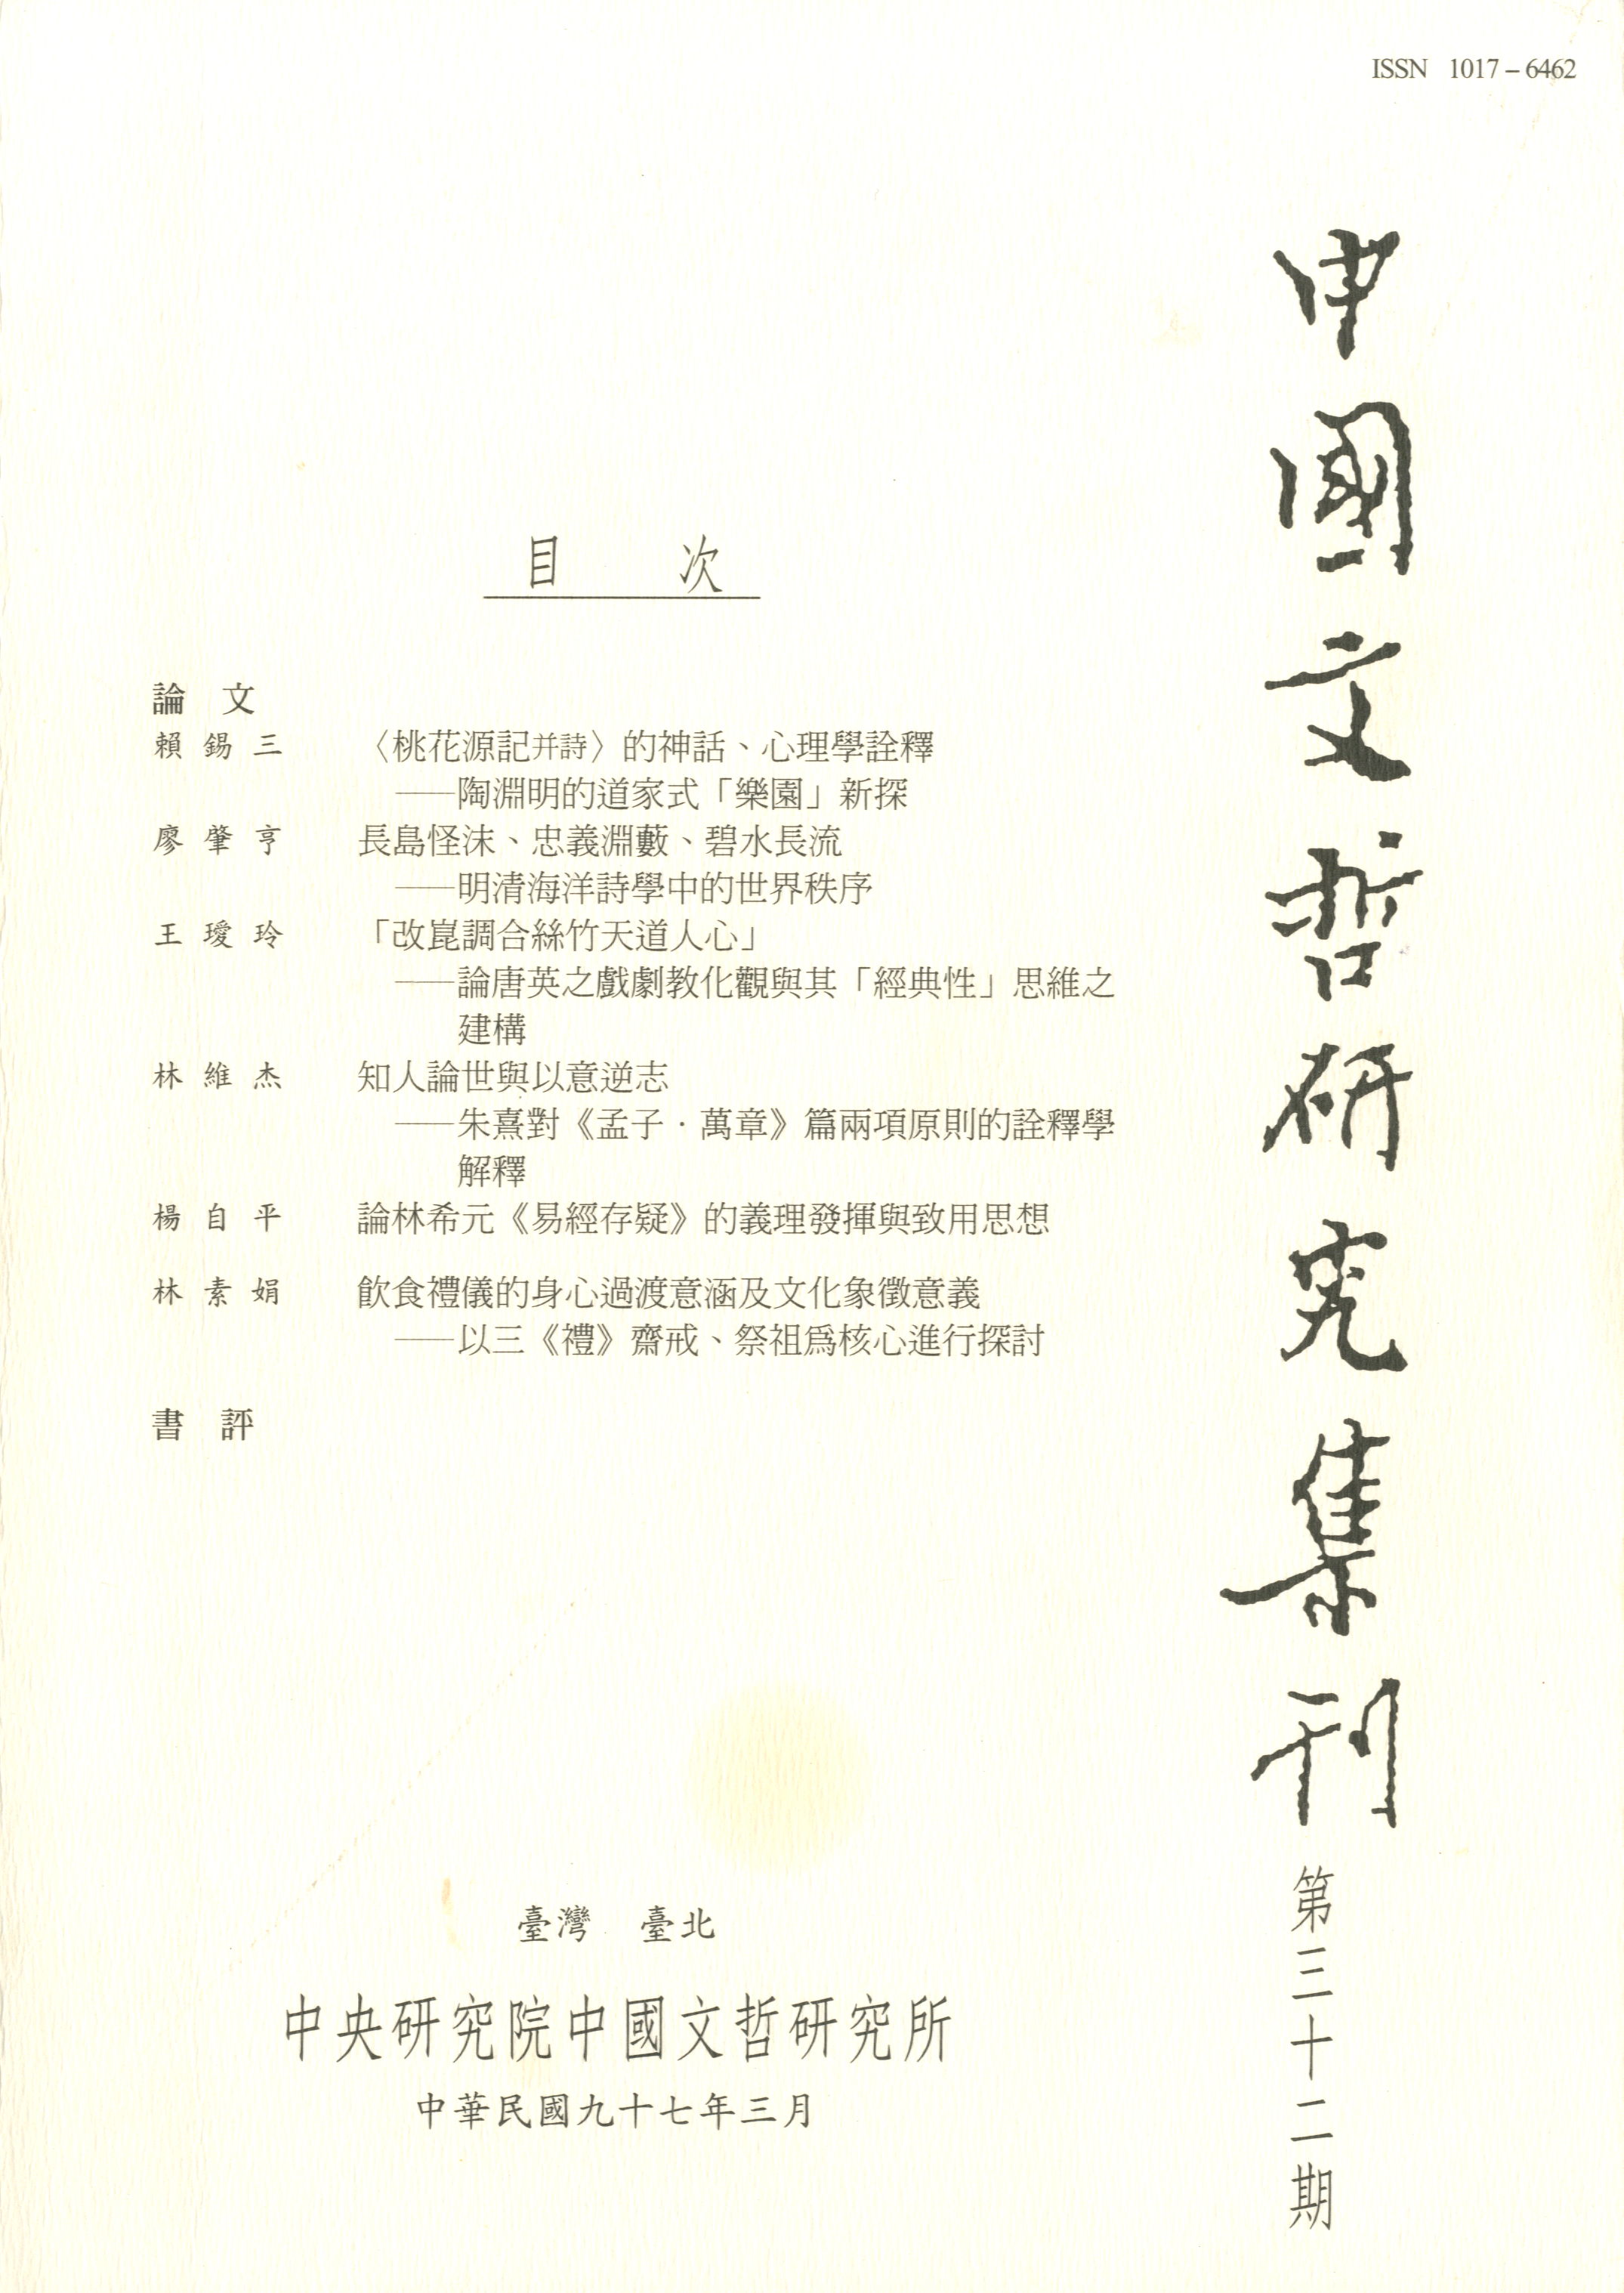 ISSN 1017－6462
中國文哲研究集刊
第三十二期
目 次
論 文
賴 錫 三 〈桃花源記并詩〉的神話、心理學詮釋
——陶淵明的道家式「樂園」新探
廖 肇 亨 長島怪沫、忠義淵藪、碧水長流
——明清海洋詩學中的世界秩序
王 璦 玲 「改崑調合絲竹天道人心」
——論唐英之戲劇教化觀與其「經典性」思維之
建構
林 維 杰 知人論世與以意逆志
——朱熹對《孟子．萬章》篇兩項原則的詮釋學
解釋
楊 自 平 論林希元《易經存疑》的義理發揮與致用思想
林 素 娟 飲食禮儀的身心過渡意涵及文化象徵意義
——以三《禮》齋戒、祭祖爲核心進行探討
書 評
臺灣 臺北
中央研究院中國文哲研究所
中華民國九十七年三月